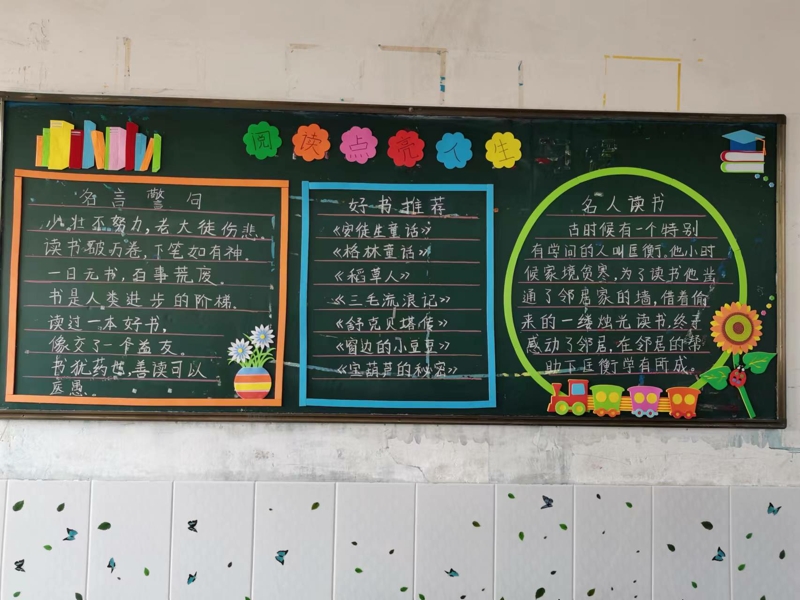 阅读点亮人生
名言警句
少壮不努力,老大徒伤悲。
读书破万卷,下笔如有神。
一日无书,百事荒废。
书是人类进步的阶梯。
读过一本好书,
像交了一个益友。
书犹药也,善读可以
医愚。
好书推荐
《安徒生童话》
《格林童话》
《稻草人》
《三毛流浪记》
《舒克贝塔传》
《窗边的小豆豆》
《宝葫芦的秘密》
名人读书
古时候有一个特别
有学问的人叫匡衡,他小时
候家境贫寒,为了读书他凿
通了邻居家的墙,借着偷
来的一缕烛光读书,终于
感动了邻居,在邻居的帮
助下匡衡学有所成。